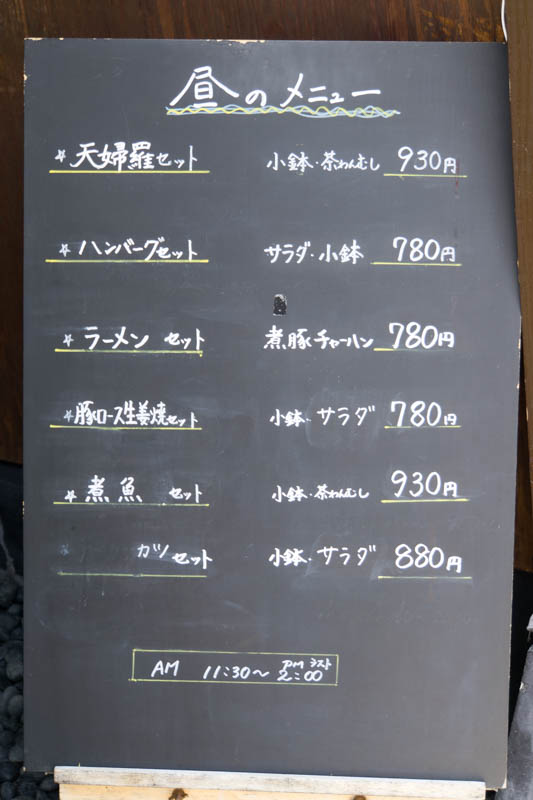 昼のメニュー
☆天婦羅セット 小鉢・茶わんむし 930円
☆ハンバーグセット サラダ・小鉢 780円
☆ラーメン セット 煮豚チャーハン 780円
☆豚ロース生姜焼セット 小鉢・サラダ 780円
☆煮魚 セット 小鉢・茶わんむし 930円
カツセット 小鉢・サラダ 880円
AM 11:30〜 PM 2:00 ラスト